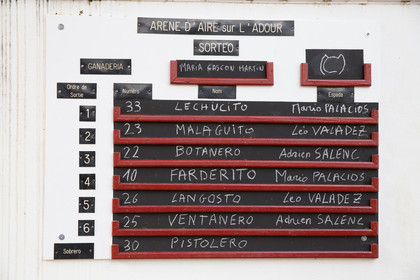 ARENE D'AIRE sur L'ADOUR
SORTEO
GANADERIA
MARIA GASCON MARTIN
Ordre de Sortie
Numéro Nom Espada
1 33 LECHUCITO Mario PALACIOS
2 23 MALAGUITO Léo VALADEZ
3 22 BOTANERO Adrien SALENC
4 10 FARDERITO Mario PALACIOS
5 26 LANGOSTO Leo VALADEZ
6 25 VENTANERO Adrien SALENC
Sobrero 30 PISTOLERO